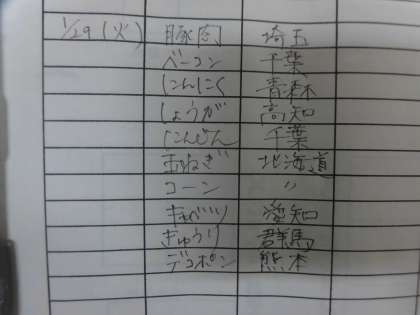 1/29(火) 豚肉 埼玉
ベーコン 千葉
にんにく 青森
しょうが 高知
にんじん 千葉
玉ねぎ 北海道
コーン 〃
キャベツ 愛知
きゅうり 群馬
デコポン 熊本